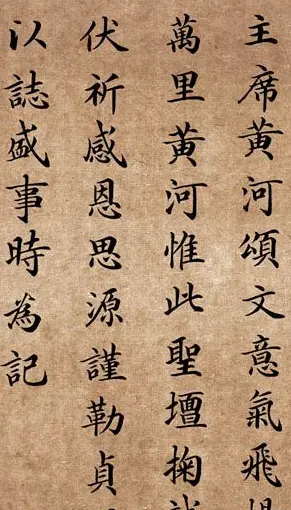 主席黄河頌文意氣飛
萬里黄河惟此聖壇掬
伏祈感恩思源謹勒貞
以誌盛事時為記